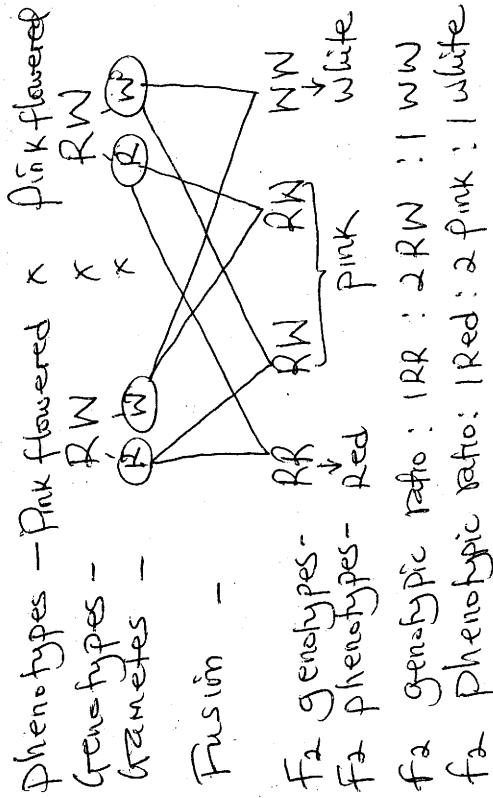 Phenotypes - Pink flowered x Pink flowered
Genotypes - RW x RW
Gametes - R W x R W
Fusion -
F2 genotypes- RR RW RW WW
F2 phenotypes- Red Pink white
f2 genotypic ratio : 1RR : 2RW : 1 WW
f2 phenotypic ratio: 1Red : 2 Pink : 1 white